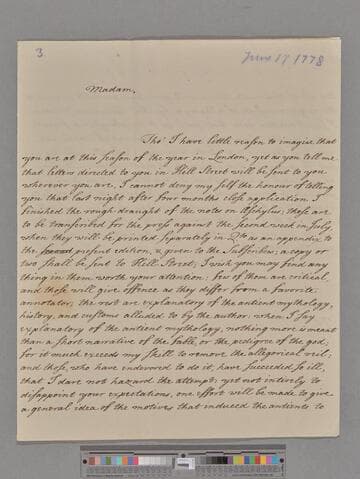 3
June 17 1778
Madam,
Tho' I have little reason to imagine that
you are at this season of the year in London, yet as you tell me
that letters directed to you in Hill Street will be sent to you
wherever you are, I cannot deny my self the honour of telling
you that last night after four months close application I
finished the rough draught of the notes on Æschylus; these are
to be transcribed for the press against the second week in July,
when they will be printed separately in Qto as an appendix to
the present edition, & given to the subscribers; a copy or
two shall be sent to Hill Street; I wish you may find any
thing in them worth your attention: few of them are critical,
and those will give offence as they differ from a favorite
annotator; the rest are explanatory of the antient mythology,
history, and customs alluded to by the author: when I say
explanatory of the antient mythology, nothing more is meant
than a short narrative of the fable, or the pedigree of the god;
for it much exceeds my skill to remove the allegorical veil;
and those, who have endevored to do it, have succeeded so ill,
that I dare not hazard the attempt; yet not intirely to
disappoint your expectations, one effort will be made to give
a general idea of the motives that induced the antients to